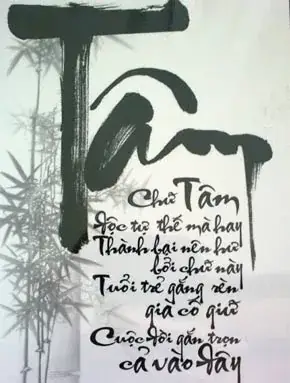 Tâm
Chữ Tâm
Độc tự thế mà hay
Thành bại nên hư
bởi chữ này
Tuổi trẻ gắng rèn
già cố giữ
Cuộc đời gắn trọn
cả vào đây